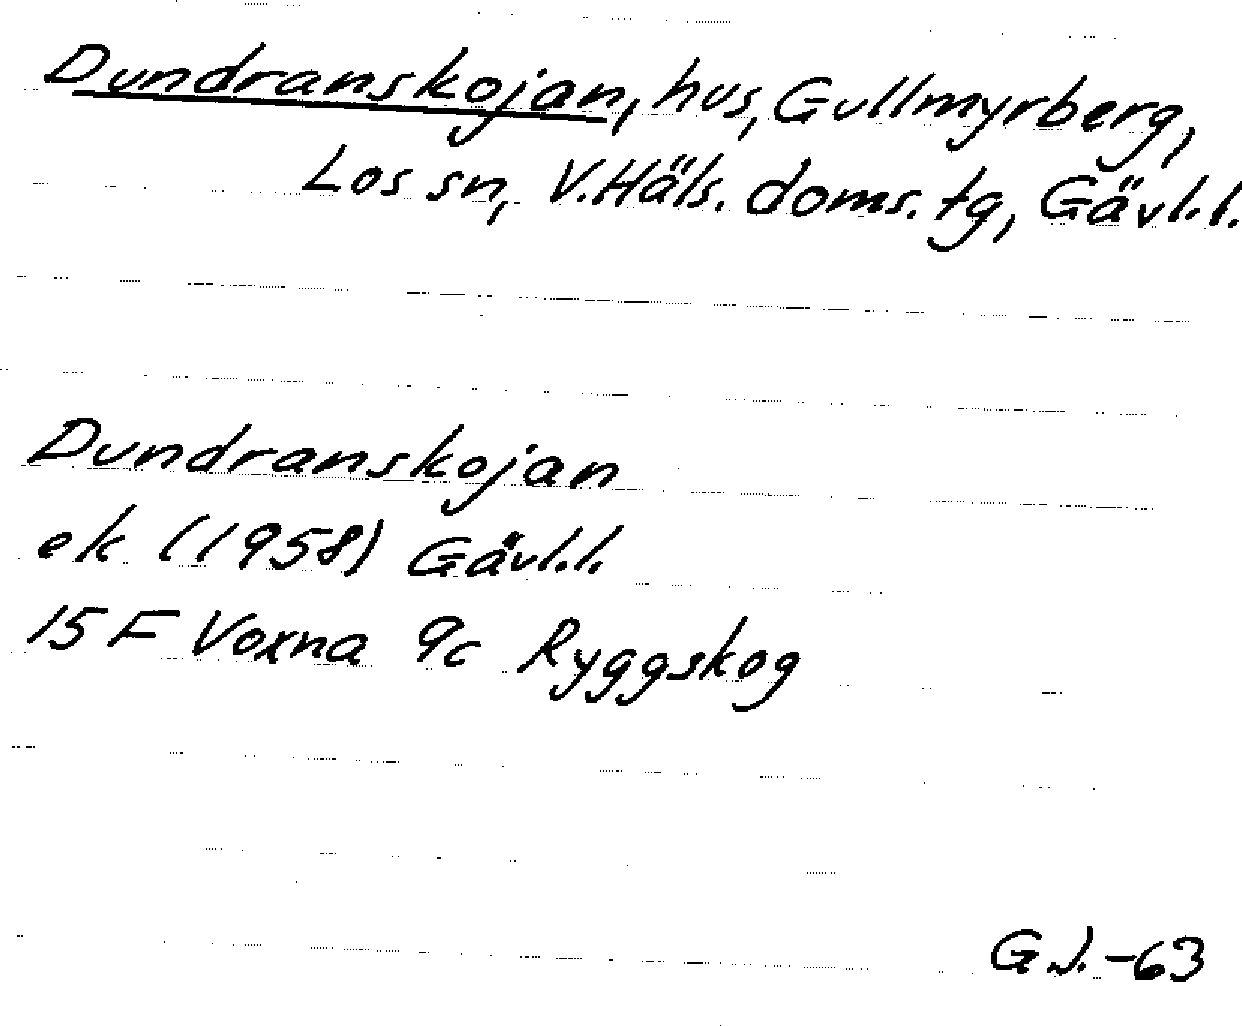 Dundranskojan, hus, Gullmyrberg,
Los sn, V.Häls. doms. tg, Gävl.l.
Dundranskojan
ek (1958) Gävl.l.
15 F Voxna 9c Ryggskog
G.J.-63